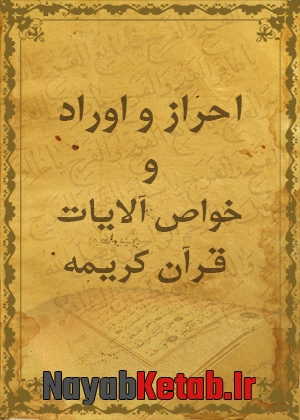 احراز و اوراد
و
خواص آلایات
قرآن کریمه
NayabKetab.Ir